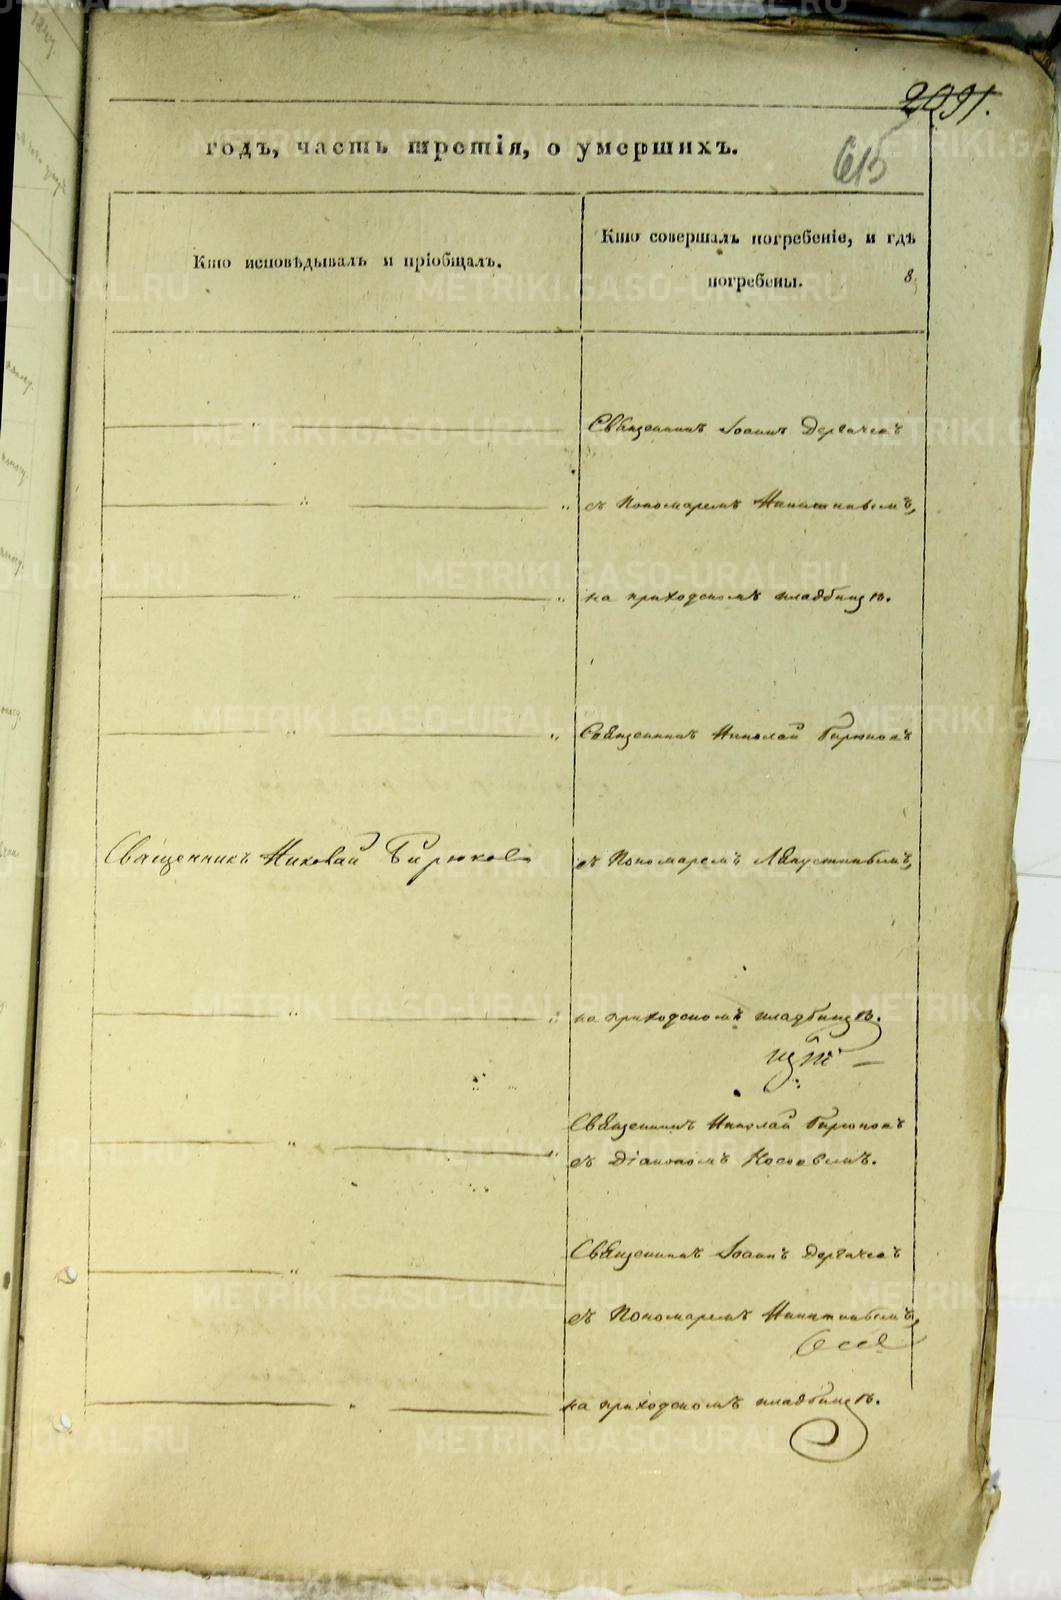 2091.
613
годъ, часть третія, о умершихъ.
Кто исповѣдывалъ и пріобщалъ.
Кто совершалъ погребеніе, и гдѣ
погребены.
8
Священникъ Іоаннъ Дергачевъ
съ Пономаремъ Никитинымъ,
на приходскомъ кладбищѣ.
Священникъ Николай Бирюковъ
Священникъ Николай Бирюковъ
съ Пономаремъ
на приходскомъ кладбищѣ.
Священникъ Николай Бирюковъ
съ Діакономъ Косовымъ.
Священникъ Іоаннъ Дергачевъ
съ Пономаремъ Никитинымъ,
на приходскомъ кладбищѣ.
METRIKI.GASO-URAL.RU